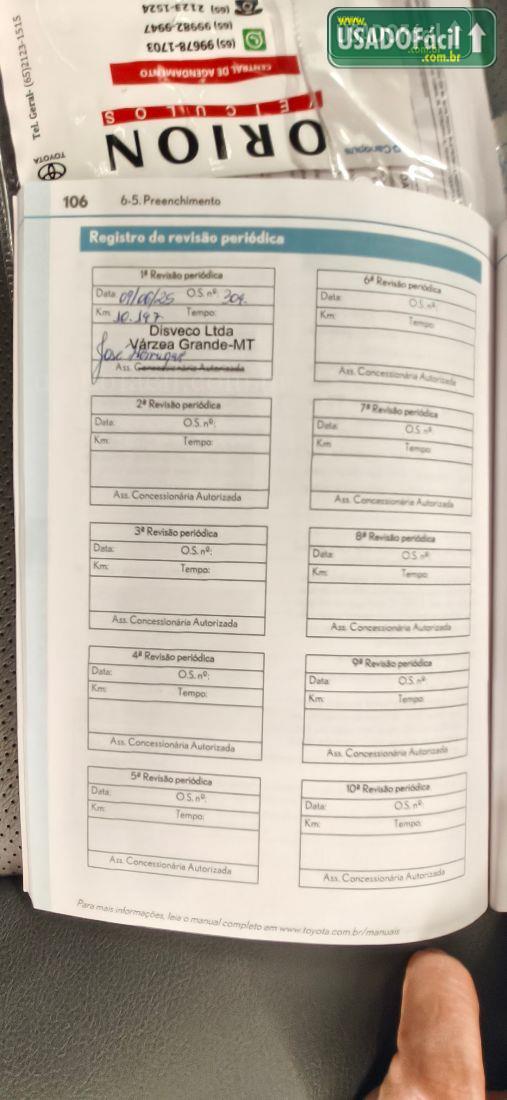 www.
USADOFácil
.com.br
(65) 2123-1524
(65) 99982-9947
(65) 99678-1703
CENTRAL DE AGENDAMENTO
VEÍCULOS
ORION
Tel. Geral- (65)2123-1515
TOYOTA
Canopus
106 6-5. Preenchimento
Registro de revisão periódica
1ª Revisão periódica
Data: 09/06/25 O.S. nº: 304.
Km: 10.147 Tempo:
Disveco Ltda
Várzea Grande-MT
José Henrique
Ass. Concessionária Autorizada
2ª Revisão periódica
Data: O.S. nº:
Km: Tempo:
Ass. Concessionária Autorizada
3ª Revisão periódica
Data: O.S. nº:
Km: Tempo:
Ass. Concessionária Autorizada
4ª Revisão periódica
Data: O.S. nº:
Km: Tempo:
Ass. Concessionária Autorizada
5ª Revisão periódica
Data: O.S. nº:
Km: Tempo:
Ass. Concessionária Autorizada
6ª Revisão periódica
Data: O.S. nº:
Km: Tempo:
Ass. Concessionária Autorizada
7ª Revisão periódica
Data: O.S. nº:
Km: Tempo:
Ass. Concessionária Autorizada
8ª Revisão periódica
Data: O.S. nº:
Km: Tempo:
Ass. Concessionária Autorizada
9ª Revisão periódica
Data: O.S. nº:
Km: Tempo:
Ass. Concessionária Autorizada
10ª Revisão periódica
Data: O.S. nº:
Km: Tempo:
Ass. Concessionária Autorizada
Para mais informações, leia o manual completo em www.toyota.com.br/manuais